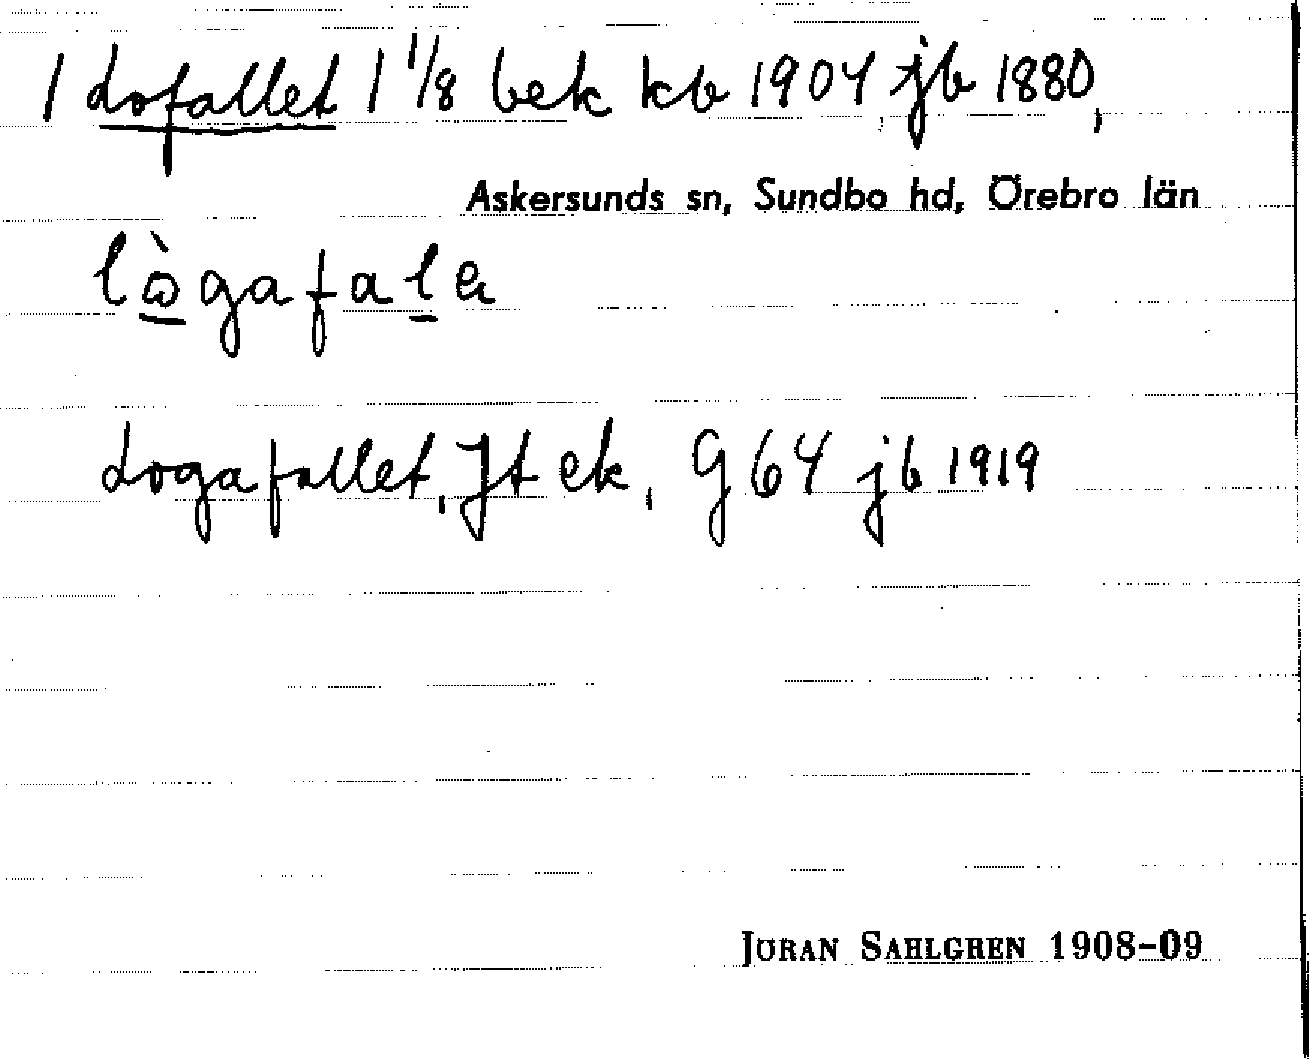 1 Lofallet 1 1/8 bek kb 1904, jb 1880,
Askersunds sn, Sundbo hd, Örebro län
lògafala
Logafallet, Jt ek, G 64 jb 1919
JÖRAN SAHLGREN 1908-09